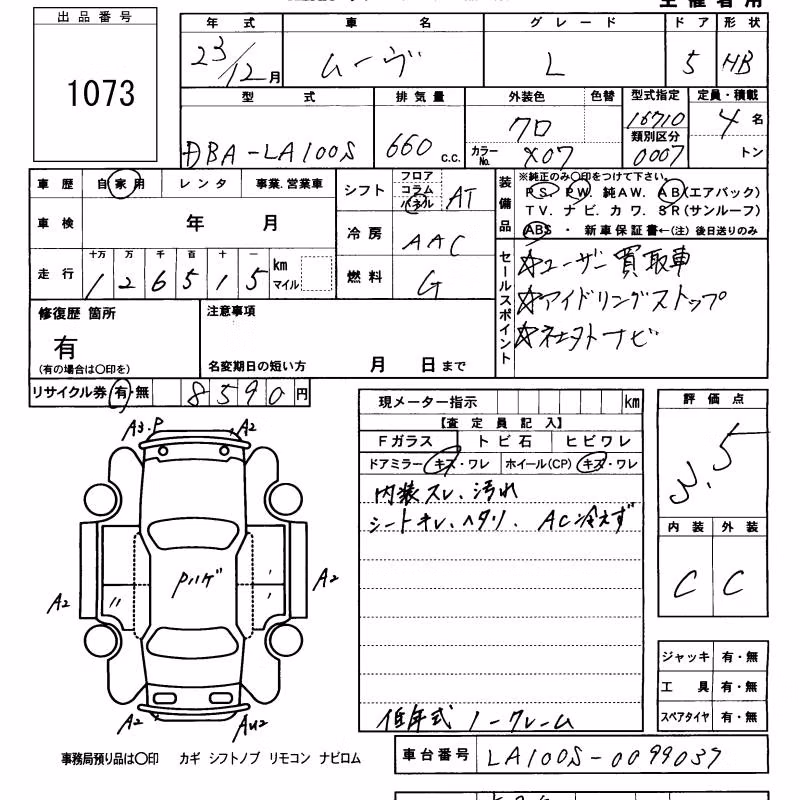 主催者用
出品番号
1073
年式 車名 グレード ドア 形状
23/12月 ムーヴ L 5 HB
型式 排気量 外装色 色替 型式指定 定員・積載
DBA-LA100S 660 c.c. クロ 16710 4名
カラーNo. X07 類別区分 0007 トン
車歴 自家用 レンタ 事業.営業車
車検 年 月
走行 十万 万 千 百 十 一
1 2 6 5 1 5 km マイル
シフト フロア コラム パネル AT
冷房 AAC
燃料 G
装備品
※純正のみ〇印をつけて下さい。
PS. PW. 純AW. AB(エアバック)
TV. ナビ. カワ. SR(サンルーフ)
ABS・新車保証書←(注)後日送りのみ
セールスポイント
☆ユーザー買取車
☆アイドリングストップ
☆社外ナビ
修復歴 箇所
有
(有の場合は〇印を)
注意事項
名変期日の短い方 月 日まで
リサイクル券 有・無 8590円
現メーター指示 km
【査定員記入】
Fガラス トビ石 ヒビワレ
ドアミラー キズ・ワレ ホイール(CP) キズ・ワレ
内装スレ、汚れ
シートキレ、ヘタリ. AC冷えず
低年式ノークレーム
評価点
3.5
内装 外装
C C
A3.P A2
Pハゲ
A2 A2
A2 AU2
ジャッキ 有・無
工具 有・無
スペアタイヤ 有・無
事務局預り品は〇印 カギ シフトノブ リモコン ナビロム
車台番号 LA100S-0099037